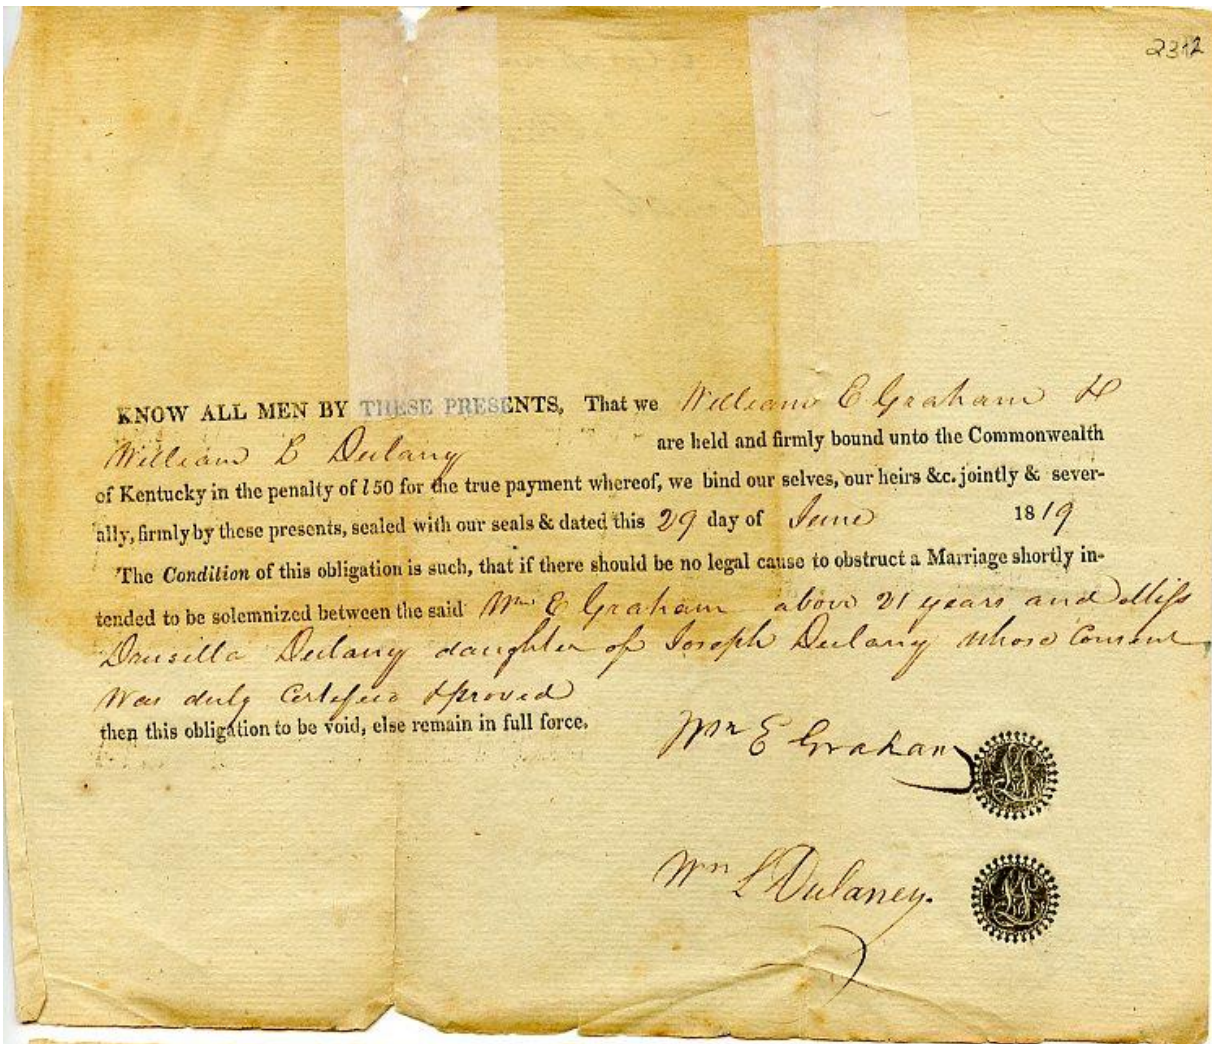 2312
KNOW ALL MEN BY THESE PRESENTS, That we William E Graham &
William L Dulany are held and firmly bound unto the Commonwealth
of Kentucky in the penalty of l 50 for the true payment whereof, we bind our selves, our heirs &c. jointly & sever-
ally, firmly by these presents, sealed with our seals & dated this 29 day of June 1819
The Condition of this obligation is such, that if there should be no legal cause to obstruct a Marriage shortly in-
tended to be solemnized between the said Wm E Graham above 21 years and Miss
Drusilla Dulany daughter of Joseph Dulany whose Consent
was duly Certified & proved
then this obligation to be void, else remain in full force.
Wm E Graham
Wm L Dulaney.